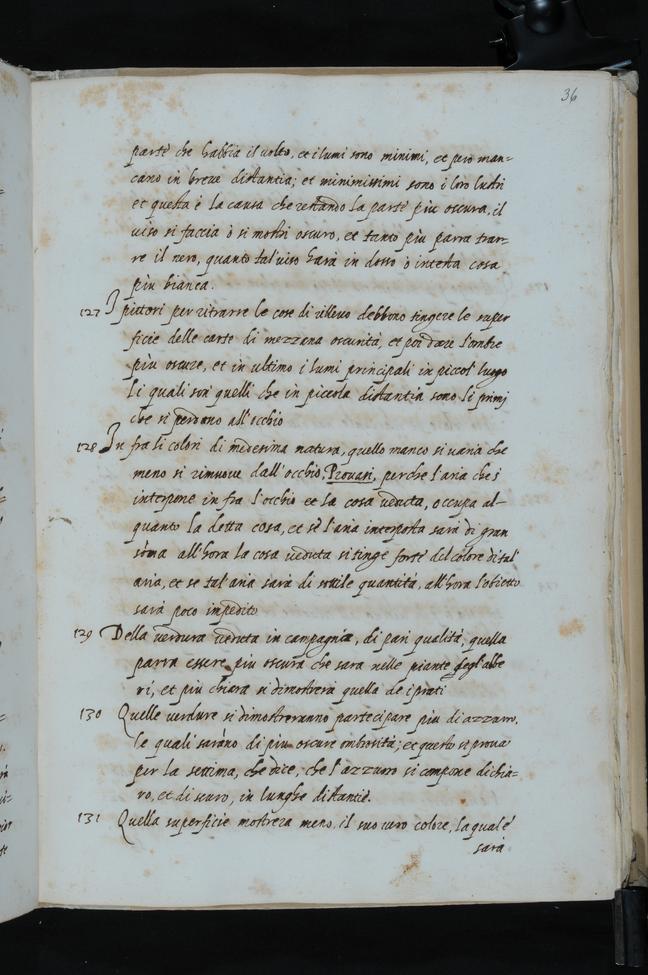 36
parte che habbia il volto, et i lumi sono minimi, et però man=
cano in breve distantia; et minimissimi sono i loro lustri
et questa è la causa che restando la parte più oscura, il
viso si faccia ò si mostri oscuro, et tanto più parra trar=
re il nero, quanto tal viso harà in dosso ò in testa cosa
più bianca.
127 I pittori per ritrarre le cose di rilievo debbono tingere le super
ficie delle carte di mezzana oscurità, et poi dare l'ombre
più oscure, et in ultimo i lumi principali in piccol luogo
li quali son quelli che in piccola distantia sono li primi
che si perdano all'occhio
128 In fra li colori di medesima natura, quello manco si varia che
meno si rimuove dall'occhio, Provasi, perche l'aria che s'
interpone in fra l'occhio et la cosa veduta, occupa al=
quanto la detta cosa, et se l'aria interposta sarà di gran
sòma all'hora la cosa veduta si tinge forte del colore di tal'
aria, et se tal aria sarà di sottile quantità, all'hora l'obietto
sarà poco impedito
129 Della verdura veduta in campagnia, di pari qualità, quella
parra essere più oscura che sara nelle piante degl'albe
ri, et più chiara si dimostrera quella de i prati
130 Quelle verdure si dimostreranno partecipare più di azzurro,
le quali saràno di più oscure ombrosità; et questo si prova
per la settima, che dice, che l'azzurro si compone di chia=
ro, et di scuro, in lunghe distantie.
131 Quella superficie mostrera meno, il suo vero colore, la quale
sarà